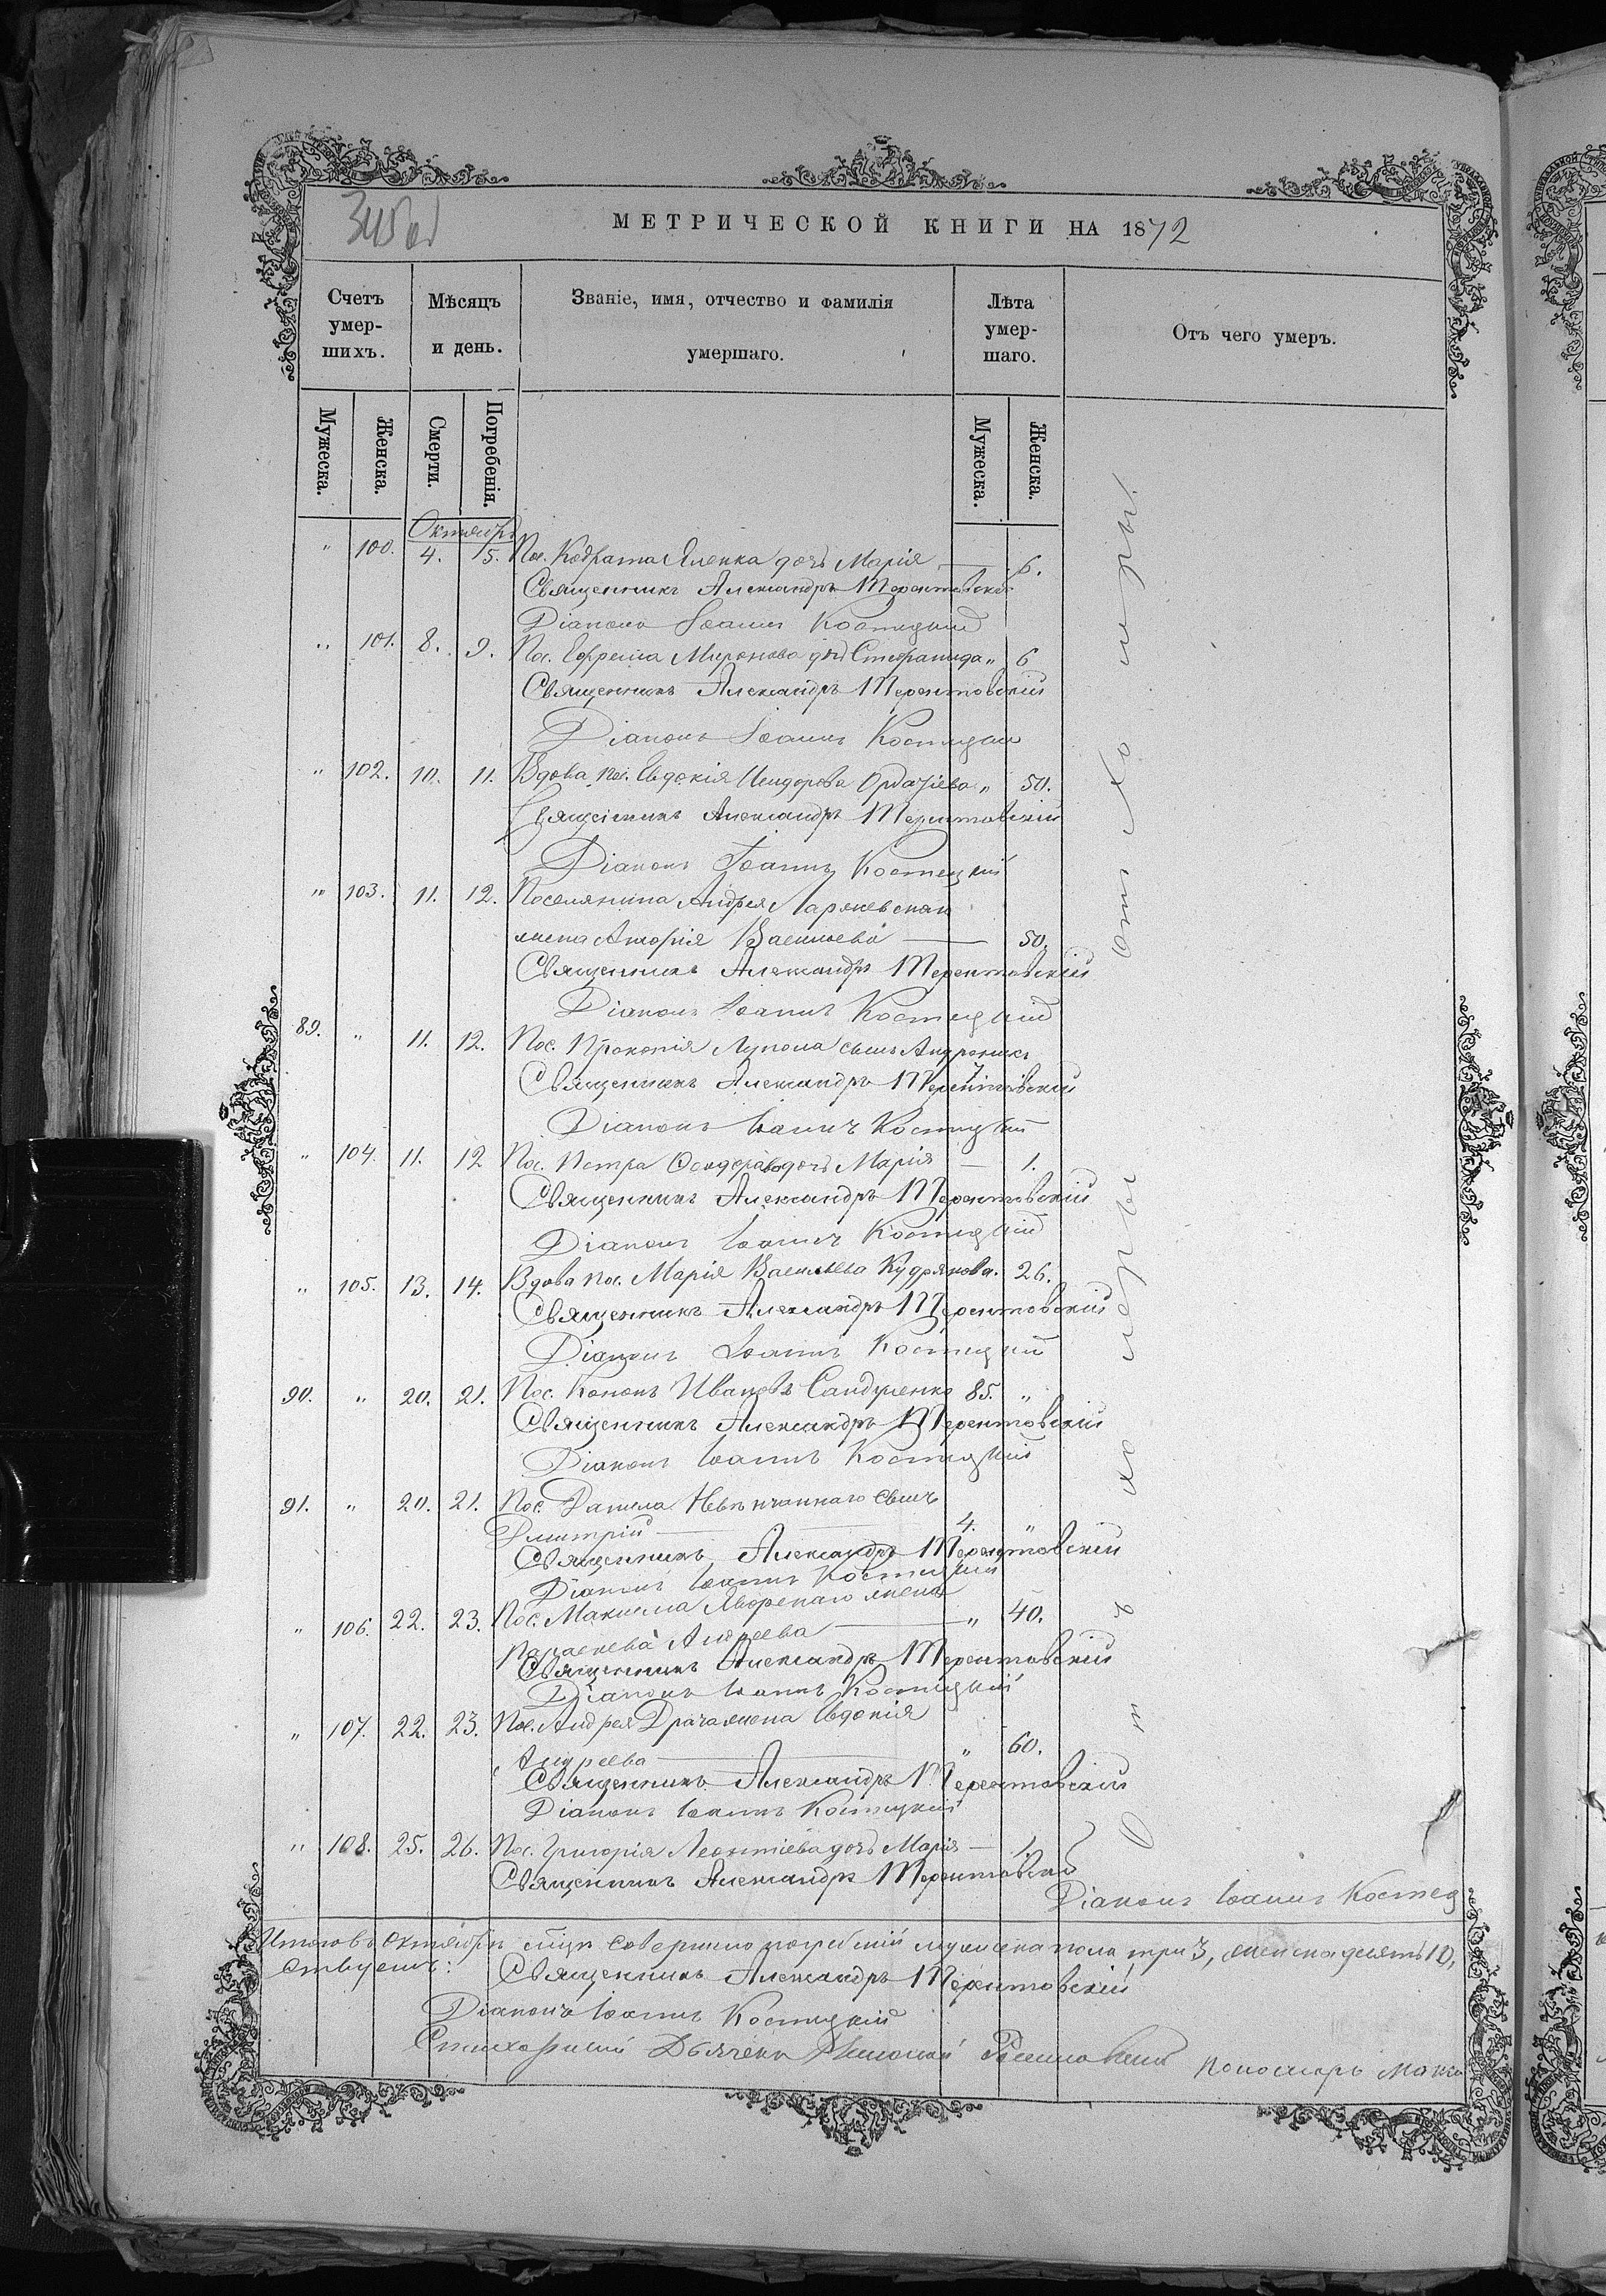 МЕТРИЧЕСКОЙ КНИГИ НА 1872
Счетъ умер-шихъ.
Мѣсяцъ и день.
Званіе, имя, отчество и фамилія умершаго.
Лѣта умер-шаго.
Отъ чего умеръ.
Мужеска.
Женска.
Смерти.
Погребенія.
Мужеска.
Женска.
Октябрь
" 100. 4. 5. Пос. Кодрата дочь Марія — 6.
Священникъ Александръ Терентовскій
Діаконъ Іоаннъ Костецкій
" 101. 8. 9. Пос. Ефрема Миронова дочь Стефанида " 6
Священникъ Александръ Терентовскій
Діаконъ Іоаннъ Костецкій
" 102. 10. 11. Вдова пос. Евдокія Исидорова " 50.
Священникъ Александръ Терентовскій
Діаконъ Іоаннъ Костецкій
" 103. 11. 12. Поселянина Андрея
жена Васильева — 50.
Священникъ Александръ Терентовскій
Діаконъ Іоаннъ Костецкій
89. " 11. 12. Пос. Прокопія Лупола сынъ Андроникъ
7
Священникъ Александръ Терентовскій
Діаконъ Іоаннъ Костецкій
" 104. 11. 12 Пос. Петра дочь Марія — 1.
Священникъ Александръ Терентовскій
Діаконъ Іоаннъ Костецкій
" 105. 13. 14. Вдова пос. Марія Васильева Кудрякова. 26.
Священникъ Александръ Терентовскій
Діаконъ Іоаннъ Костецкій
90. " 20. 21. Пос. Кононъ Ивановъ Сандуленко 85. "
Священникъ Александръ Терентовскій
Діаконъ Іоаннъ Костецкій
91. " 20. 21. Пос. Данила Невѣнчаннаго сынъ
Дмитрій — 4. "
Священникъ Александръ Терентовскій
Діаконъ Іоаннъ Костецкій
" 106. 22. 23. Пос. Максима Яворскаго жена
Параскева Андреева — " 40.
Священникъ Александръ Терентовскій
Діаконъ Іоаннъ Костецкій
" 107. 22. 23. Пос. Андрея Драча жена Евдокія
Андреева — " 60.
Священникъ Александръ Терентовскій
Діаконъ Іоаннъ Костецкій
" 108. 25. 26. Пос. Григорія Леонтіева дочь Марія — 1.
Священникъ Александръ Терентовскій
Діаконъ Іоаннъ Костец
Отъ холеры
Отъ холеры.
Итого въ Октябрѣ м̃цѣ совершено погребеній мужеска пола три 3, женска десять 10,
Священникъ Александръ Терентовскій
Діаконъ Іоаннъ Костецкій
Дьячекъ
Пономарь